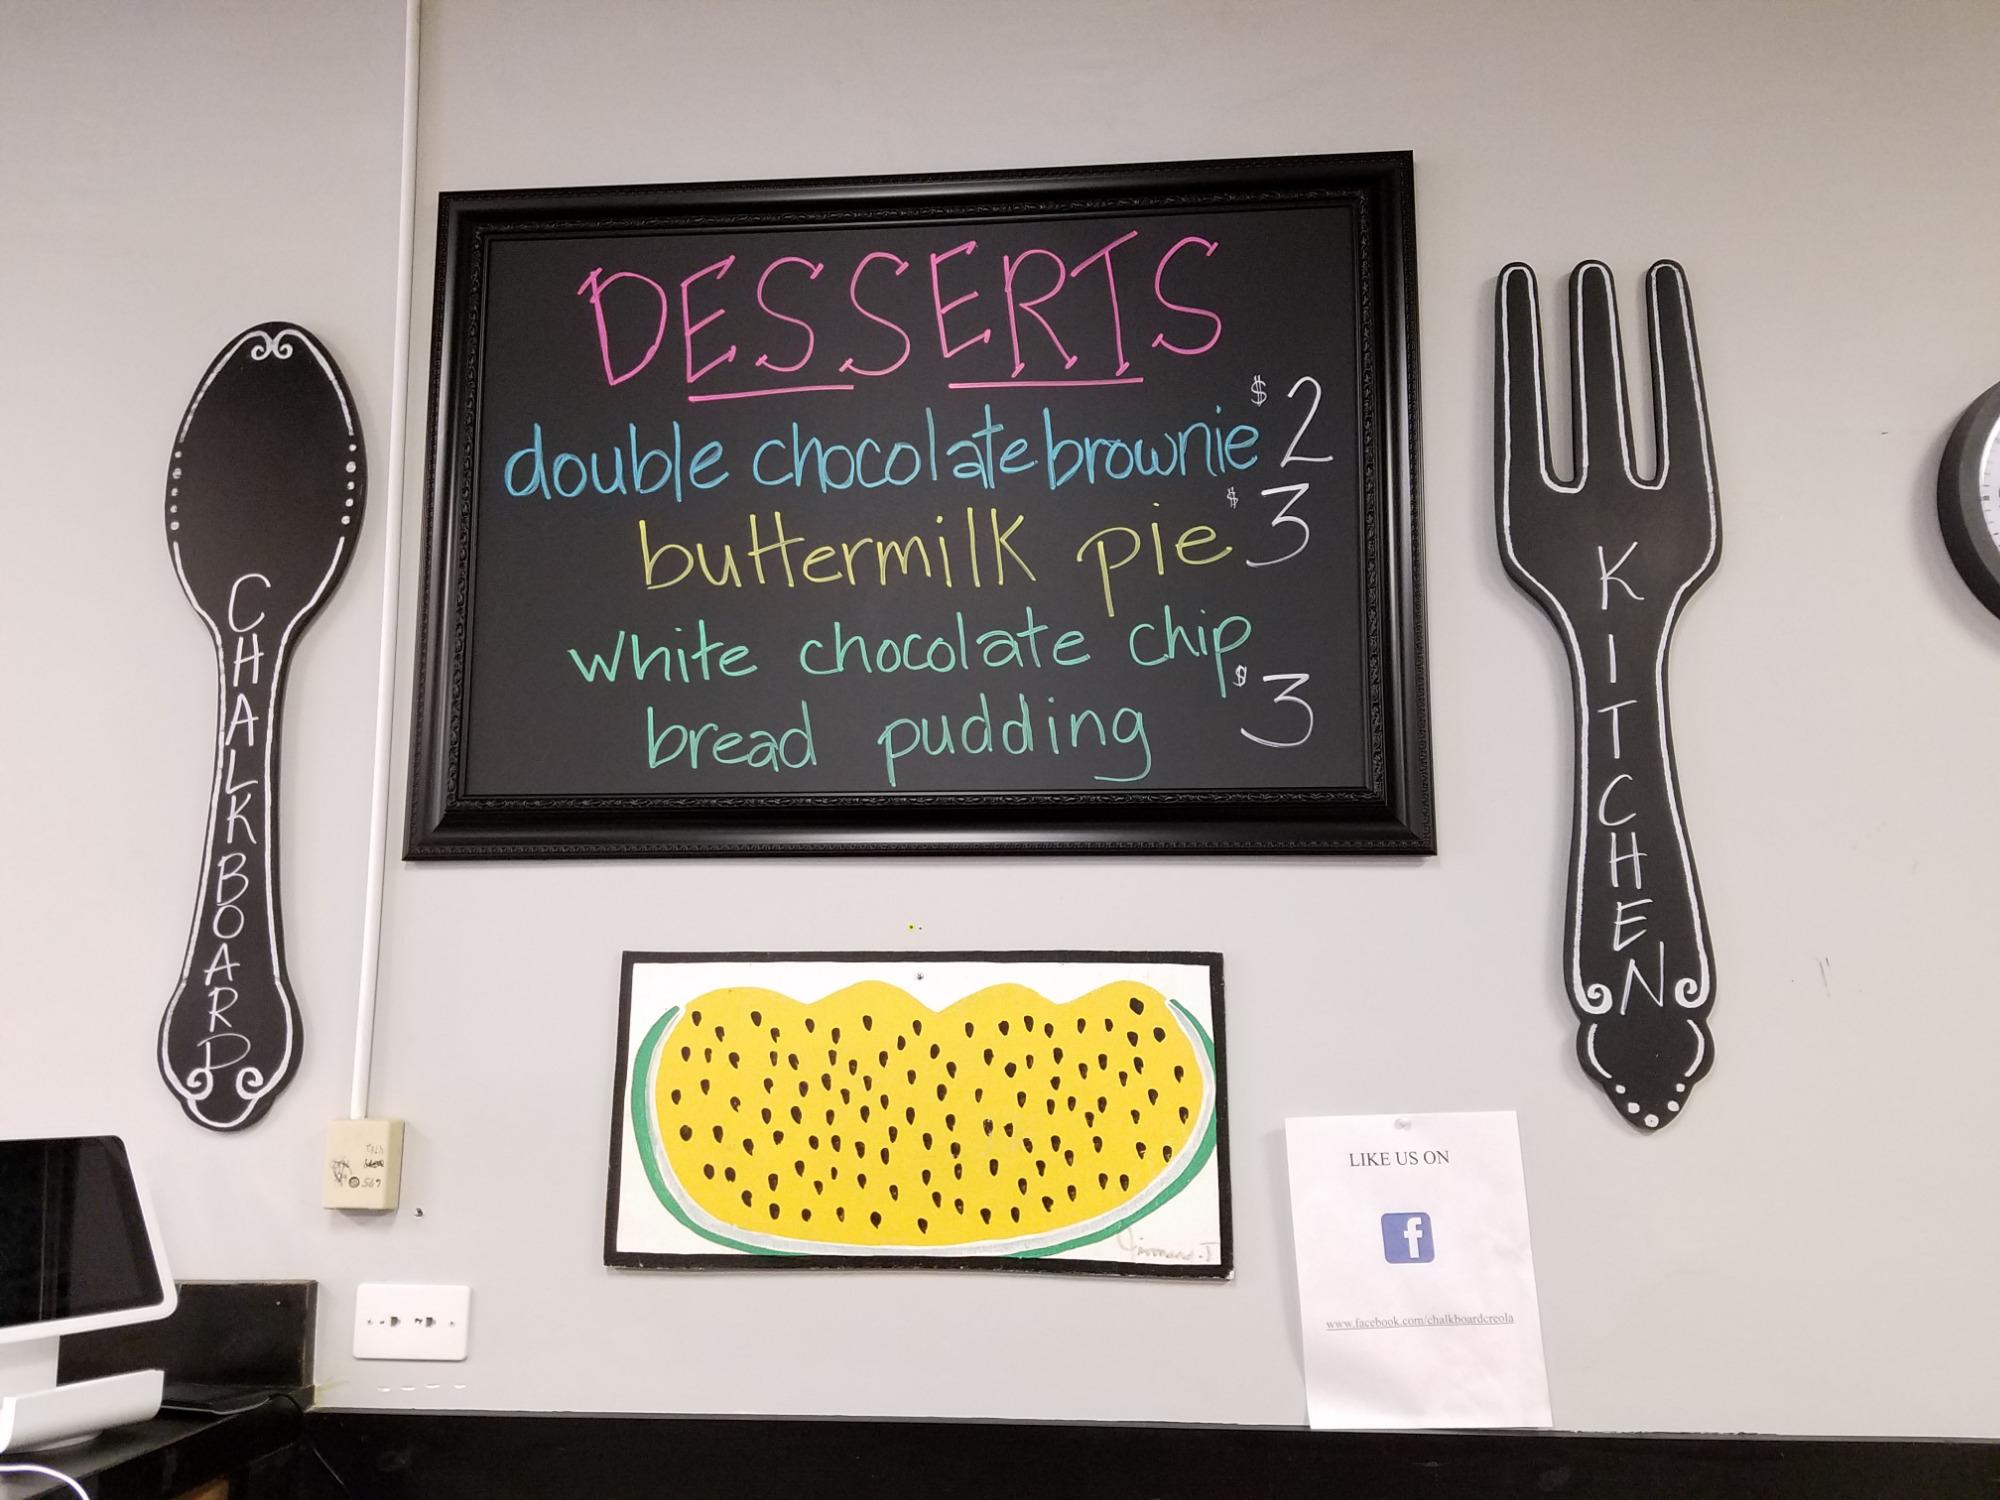 DESSERTS
double chocolate brownie $2
buttermilk pie $3
white chocolate chip
bread pudding $3
CHALKBOARD
KITCHEN
LIKE US ON
f
www.facebook.com/chalkboardcreola